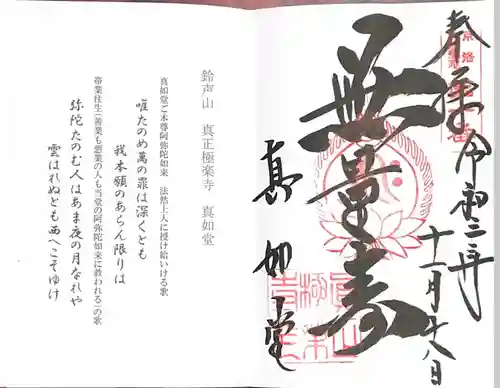 奉拝 令和三年
十一月廿八日
無量寿
真如堂
鈴声山　真正極楽寺　真如堂
真如堂ご本尊阿弥陀如来　法然上人に授け給いける歌
唯たのめ萬の罪は深くとも
我本願のあらん限りは
帯業往生(善業も悪業の人も当堂の阿弥陀如来に救われる)の歌
弥陀たのむ人はあま夜の月なれや
雲はれぬとも西へこそゆけ